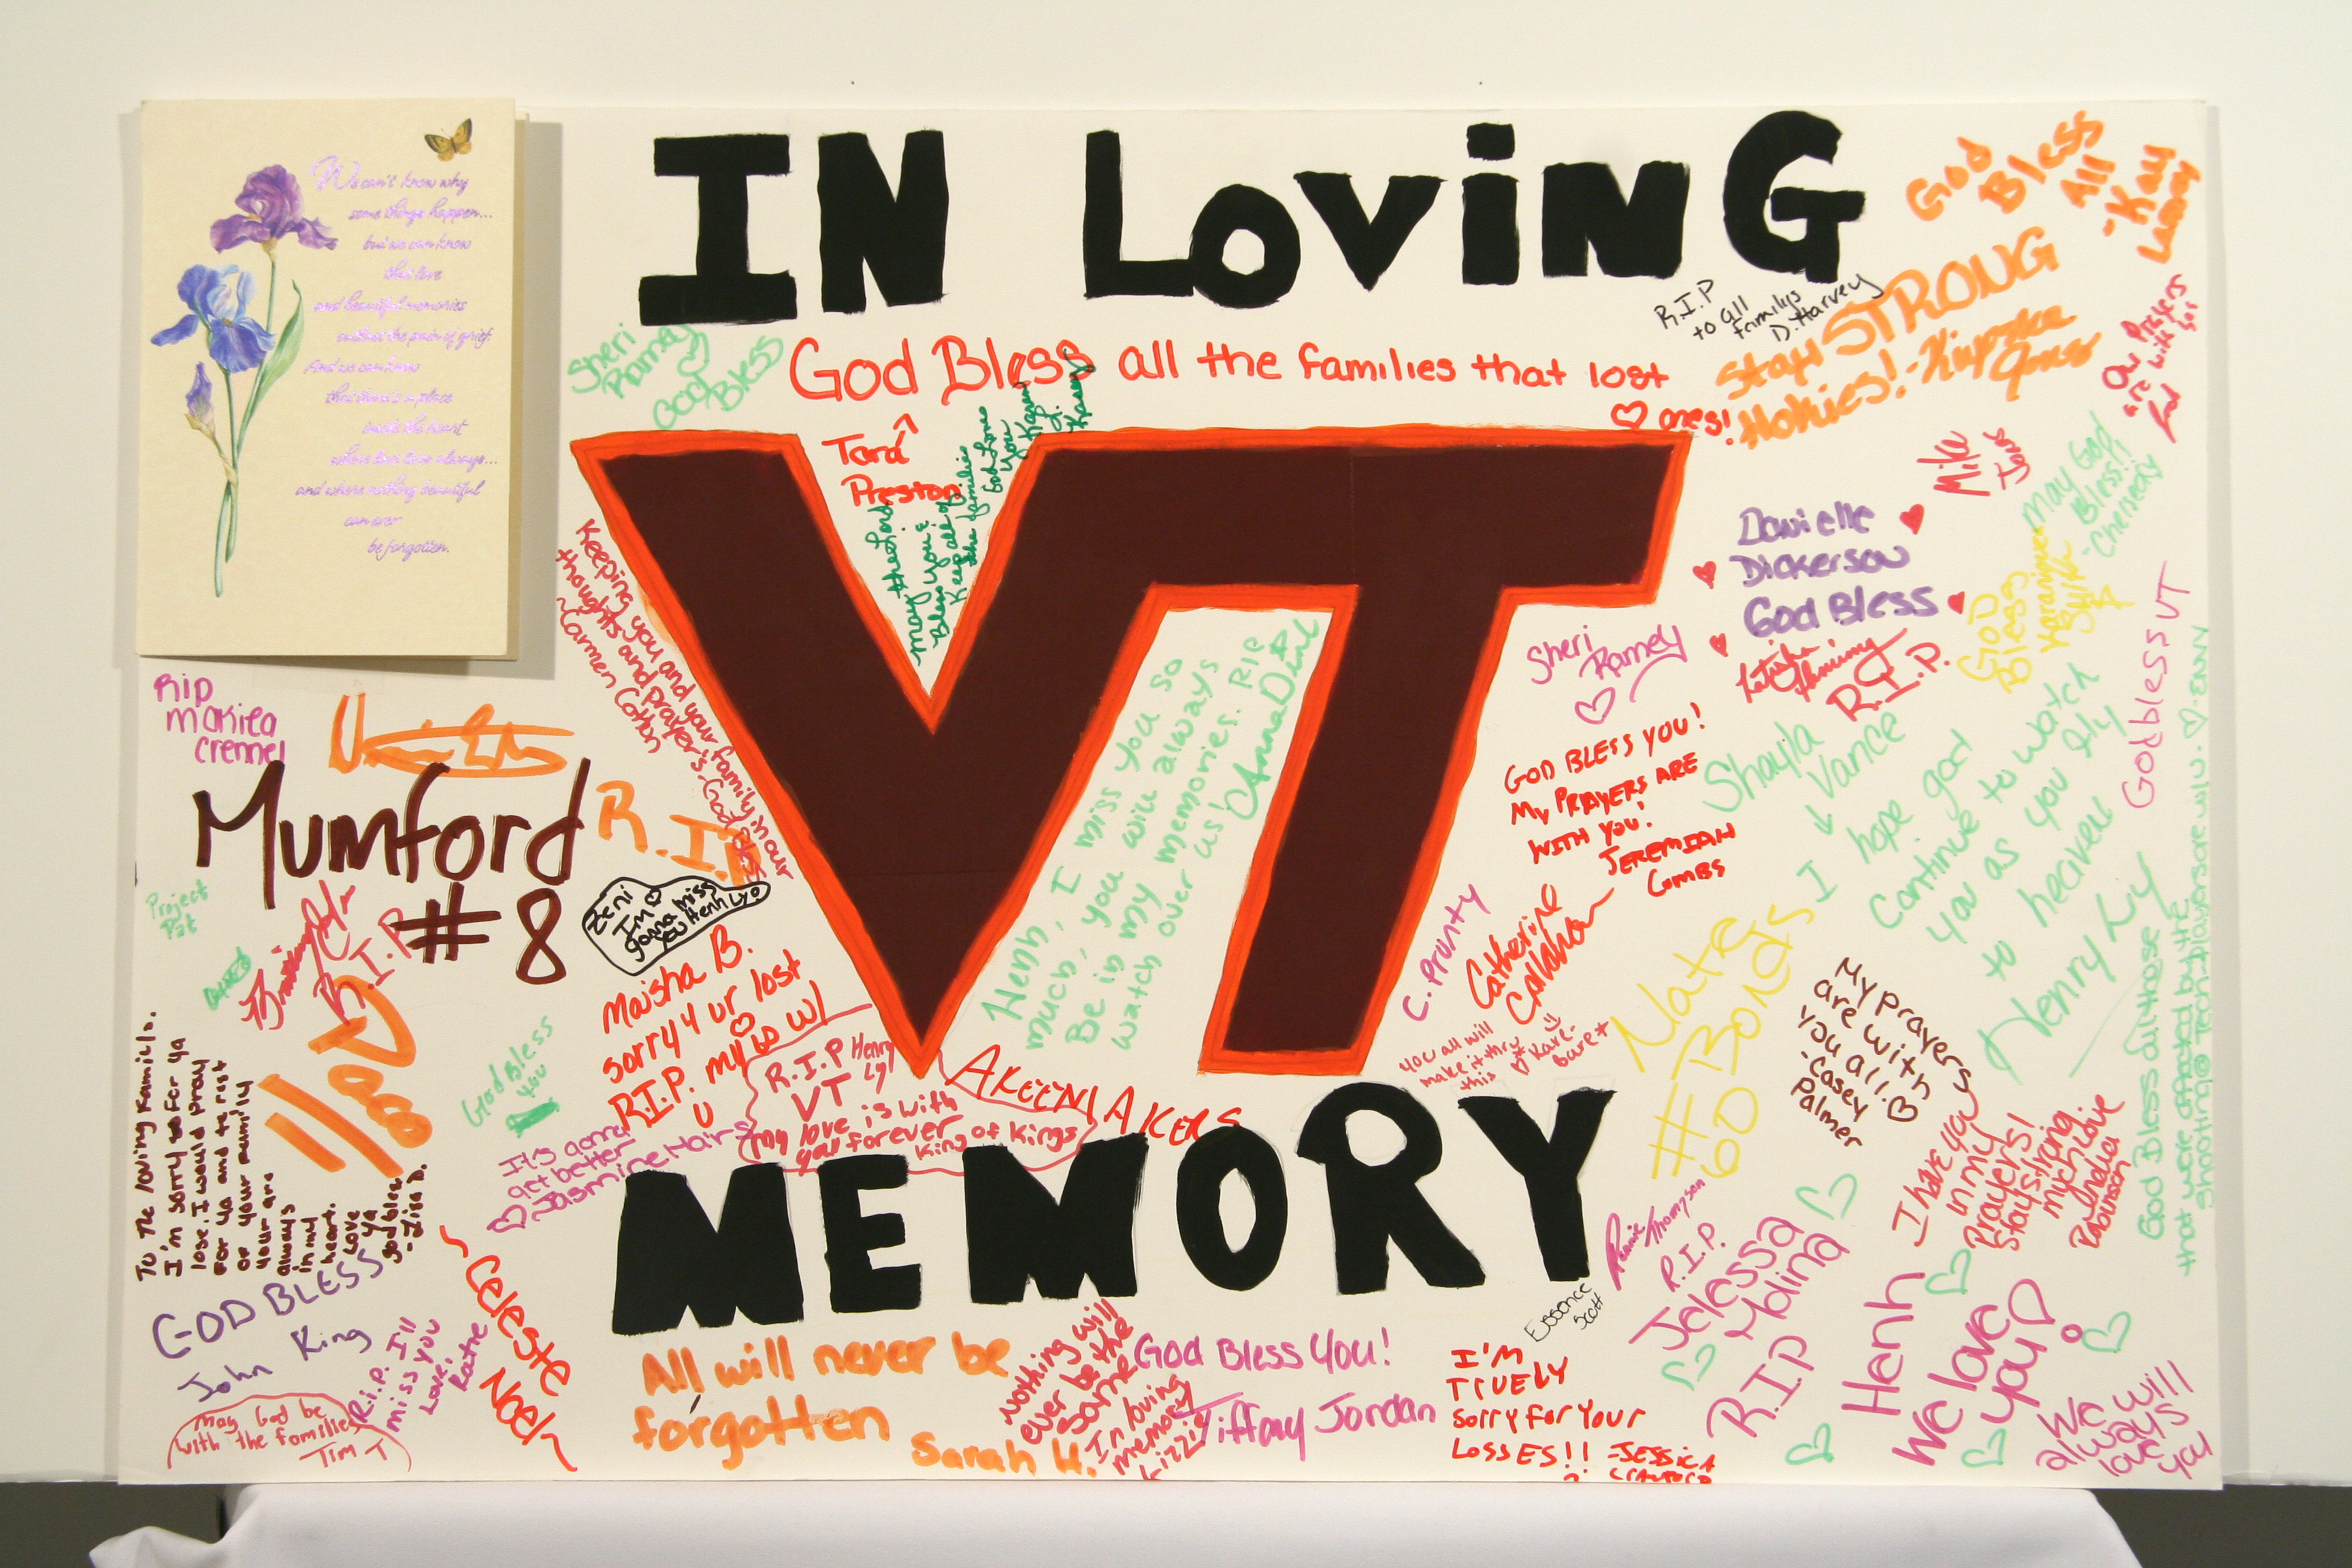 IN LOVING
We can't know why
some things happen...
but we can know
that love
and beautiful memories
outlast the pain of grief.
And we can know
that there's a place
inside the heart
where love lives always...
and where nothing beautiful
can ever
be forgotten.
God
Bless
All
-Kay
R.I.P
to all
familys
D. Harvey
Stay STRONG
Hokies!
Our Prayers
are with
Sheri
Ramey
God
Bless
God Bless all the families that lost
♡ ones!
Tara
Preston
may the Lord
Bless you &
Keep all of
the families
God Love
You
Karen
VT
Mike
Danielle
Dickerson
God Bless
May God
Bless!!
GOD
Bless
R.I.P.
God bless VT
♡ ENVY
Sheri
Ramey
Keeping you and your family in our
thoughts and Prayer's. God Bless
~Carmen Cotton
RIP
makiea
cremel
Mumford
#8
R.I.P
Zeni
I'm
gonna miss
you Henh Ly
Project
Pat
R.I.P
Maisha B.
sorry 4 ur lost
R.I.P. my ♡ go w/
U
Henh, I miss you so
much, you will always
Be in my memories. RIP
watch over us
GOD BLESS YOU!
My PRAYERS ARE
WITH YOU!
JEREMIAH
Combs
Shayla
Vance
I hope god
Continue to watch
you as you fly
to heaven
Henry Ly
C. Prunty
Catherine
Callahan
you all will
make it thru
this
Nate
Bonds
#60
My prayers
are with
you all. ♡
-Casey
Palmer
God Bless all those
that were affected by the
shooting @ Tech
To the loving family's.
I'm sorry for ya
lose. I would pray
for ya and to rest
of your family
your are
always
in my
heart.
love
ya
god bless
God Bless
you
It's gonna
get better
Jasmine Hairs
R.I.P Henry
Ly
VT
my love is with
yall forever
King of Kings
AKEEN AKERS
MEMORY
I have you
in my
Prayers!
Stay strong
much love
Robinson
Thompson
R.I.P.
Jelessa
Molina
Essence
Scott
GOD BLESS
John King
R.I.P. I'll
miss you
Love,
Katie
~Celeste
Noel~
may God be
with the families
Tim T
All will never be
forgotten
Sarah H.
Nothing will
ever be the
same
In loving
memory
God Bless You!
Tiffany Jordan
I'M
TRUELY
Sorry for Your
Losses!!
-JESSICA
CRAWFORD
R.I.P
Henh
We love
you!
We will
always
love
you